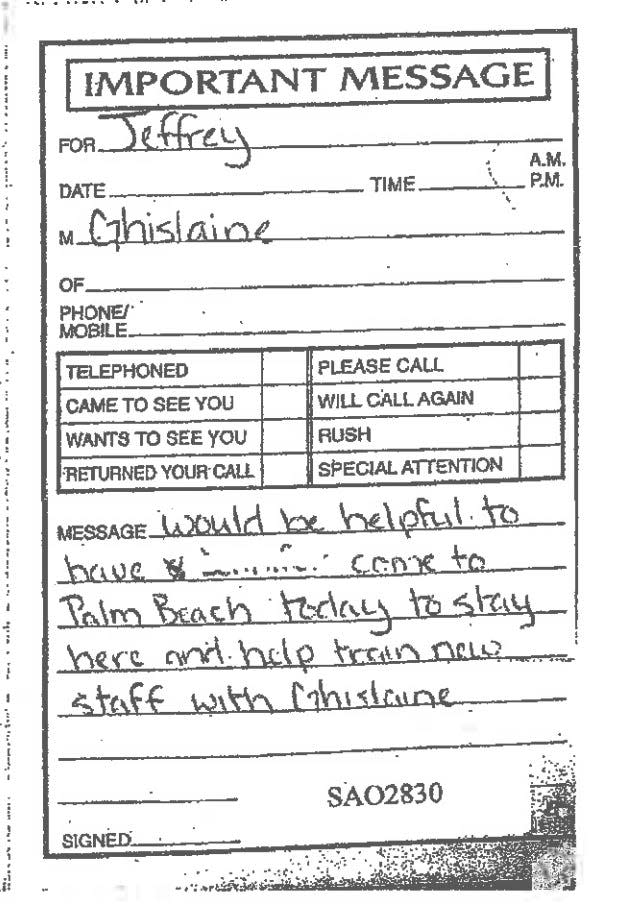 IMPORTANT MESSAGE
FOR Jeffrey
A.M.
DATE TIME P.M.
M Ghislaine
OF
PHONE/
MOBILE
TELEPHONED PLEASE CALL
CAME TO SEE YOU WILL CALL AGAIN
WANTS TO SEE YOU RUSH
RETURNED YOUR CALL SPECIAL ATTENTION
MESSAGE would be helpful to
have come to
Palm Beach today to stay
here and help train new
staff with Ghislaine
SAO2830
SIGNED